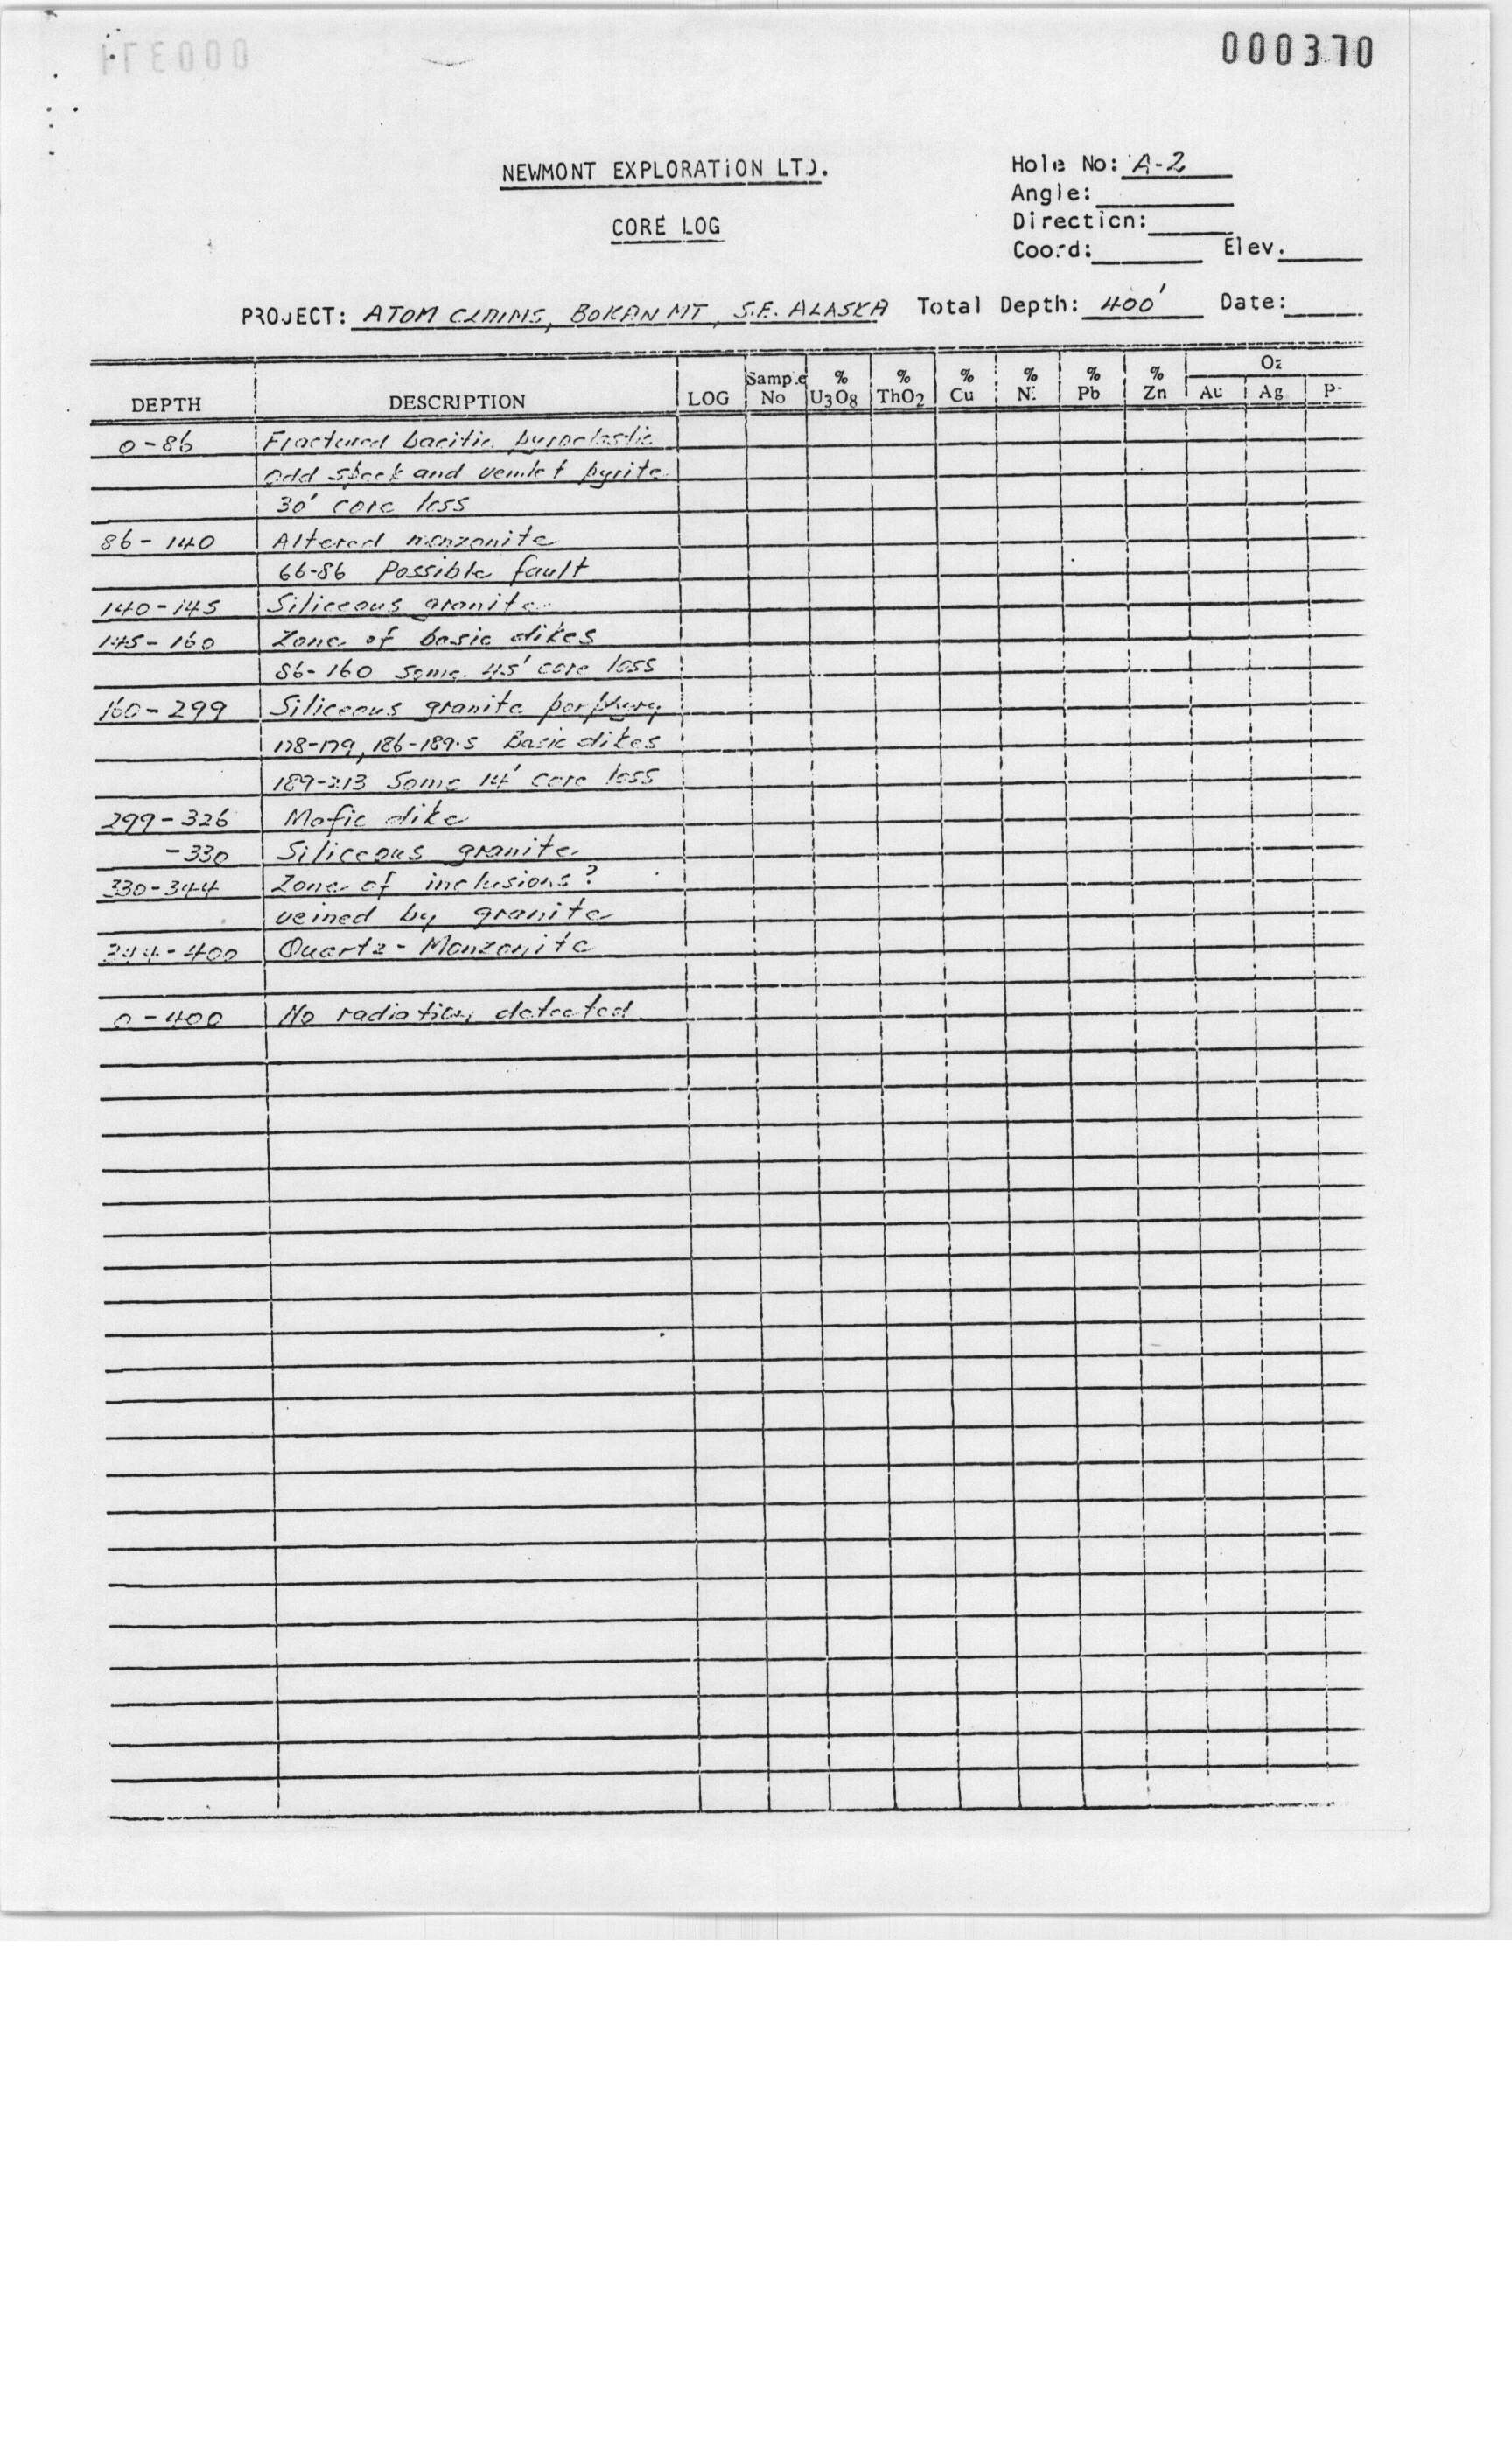 000370
NEWMONT EXPLORATION LTD.
CORE LOG
Hole No: A-2
Angle:
Direction:
Coord: Elev.
PROJECT: ATOM CLAIMS, BOKAN MT, S.E. ALASKA Total Depth: 400' Date:
DEPTH DESCRIPTION LOG Sample No % U3O8 % ThO2 % Cu % Ni % Pb % Zn Oz Au Ag P
0-86 Fractured pyroclastic
odd speck and veinlet pyrite
30' core loss
86-140 Altered monzonite
66-86 Possible fault
140-145 Siliceous granite
145-160 Zone of basic dikes
86-160 Some 45' core loss
160-299 Siliceous granite porphyry
178-179, 186-189.5 Basic dikes
189-213 Some 14' core loss
299-326 Mafic dike
-330 Siliceous granite
330-344 Zone of inclusions?
veined by granite
344-400 Quartz-Monzonite
0-400 No radiation detected